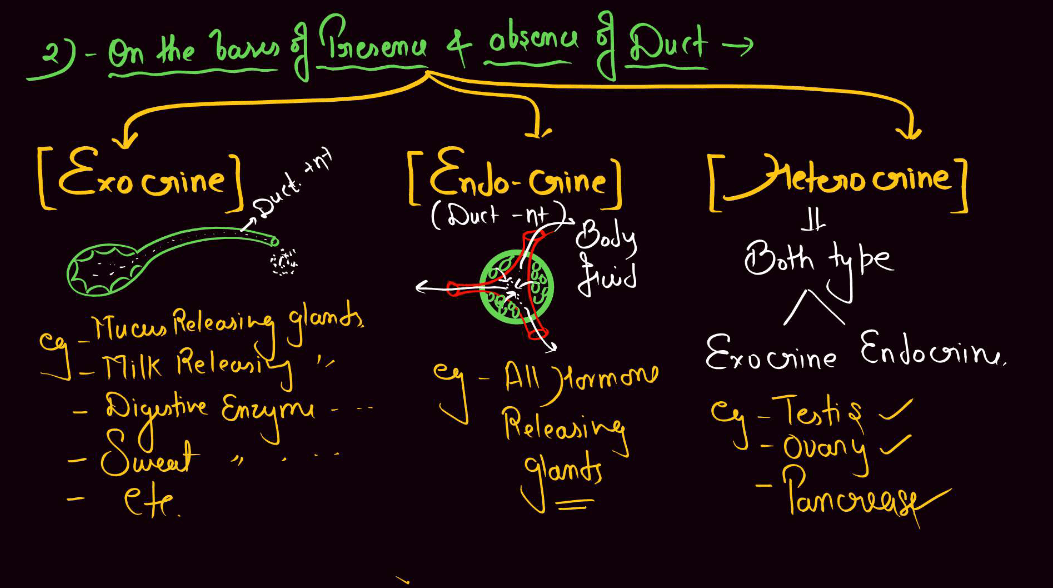 2)- On the bases of Presence & absence of Duct →
[Exocrine]
Duct +nt
eg - Mucus Releasing glands
- Milk Releasing "
- Digestive Enzyme - ...
- Sweat " . ...
- etc.
[Endo-crine]
(Duct -nt)
Body
fluid
eg - All Hormone
Releasing
glands
[Heterocrine]
Both type
Exocrine Endocrine.
eg - Testis ✓
- Ovary ✓
- Pancrease